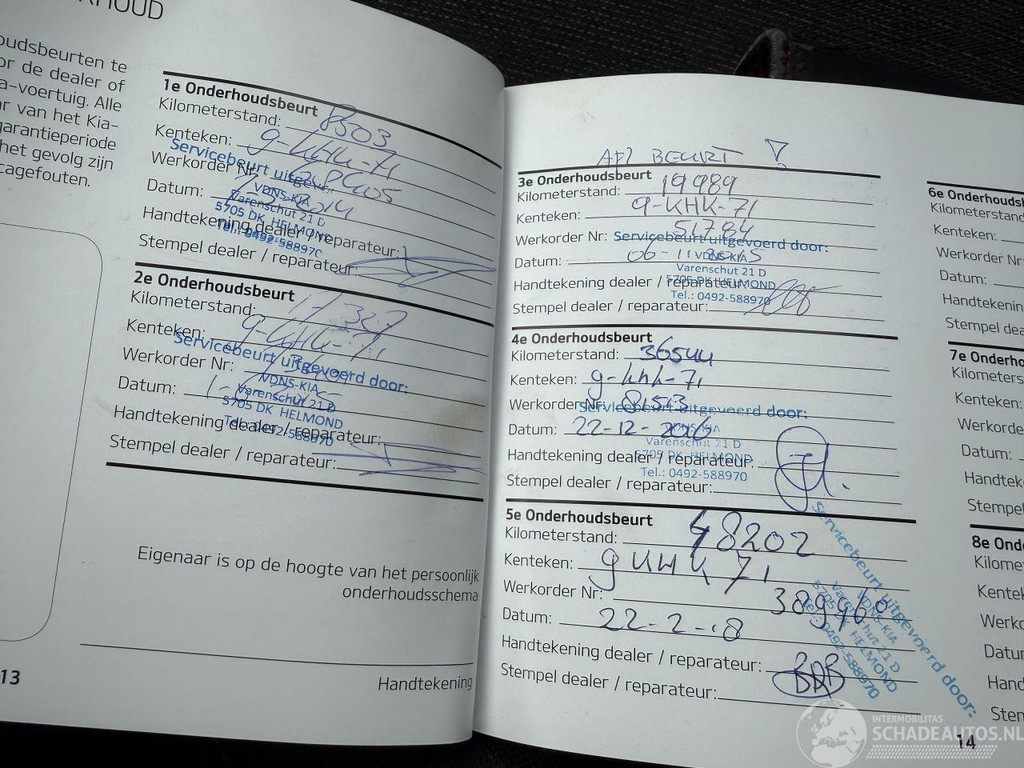 RHOUD
oudsbeurten te
or de dealer of
a-voertuig. Alle
ar van het Kia-
garantieperiode
het gevolg zijn
cagefouten.
1e Onderhoudsbeurt
Kilometerstand: 8503
Kenteken: 9-KHK-71
Werkorder Nr:
Datum:
Handtekening dealer / reparateur:
Stempel dealer / reparateur:
Servicebeurt uitgevoerd
VDNS-KIA
Varenschut 21 D
5705 DK HELMOND
Tel.: 0492-588970
2e Onderhoudsbeurt
Kilometerstand: 17327
Kenteken: 9-KHK-71
Werkorder Nr:
Datum:
Handtekening dealer / reparateur:
Stempel dealer / reparateur:
Servicebeurt uitgevoerd door:
VDNS-KIA
Varenschut 21 D
5705 DK HELMOND
Tel.: 0492-588970
Eigenaar is op de hoogte van het persoonlijk
onderhoudsschema
Handtekening
13
BEURT !
3e Onderhoudsbeurt
Kilometerstand: 19989
Kenteken: 9-KHK-71
Werkorder Nr: 51784
Datum: 06-11-
Handtekening dealer / reparateur:
Stempel dealer / reparateur:
Servicebeurt uitgevoerd door:
VDNS-KIA
Varenschut 21 D
5705 DK HELMOND
Tel.: 0492-588970
4e Onderhoudsbeurt
Kilometerstand: 36544
Kenteken: 9-KHK-71
Werkorder Nr: 81513
Datum: 22-12-
Handtekening dealer / reparateur:
Stempel dealer / reparateur:
Servicebeurt uitgevoerd door:
VDNS-KIA
Varenschut 21 D
5705 DK HELMOND
Tel.: 0492-588970
5e Onderhoudsbeurt
Kilometerstand: 48202
Kenteken: 9 KHK 71
Werkorder Nr: 389460
Datum: 22-2-18
Handtekening dealer / reparateur:
Stempel dealer / reparateur:
Servicebeurt uitgevoerd door:
VDNS-KIA
Varenschut 21 D
5705 DK HELMOND
Tel.: 0492-588970
6e Onderhouds
Kilometerstand
Kenteken:
Werkorder Nr:
Datum:
Handtekening
Stempel deal
7e Onderho
Kilometers
Kenteken:
Werkorde
Datum:
Handteke
Stempel
8e Ond
Kilome
Kentek
Werko
Datu
Hand
Stem
14
INTERMOBILITAS
SCHADEAUTOS.NL